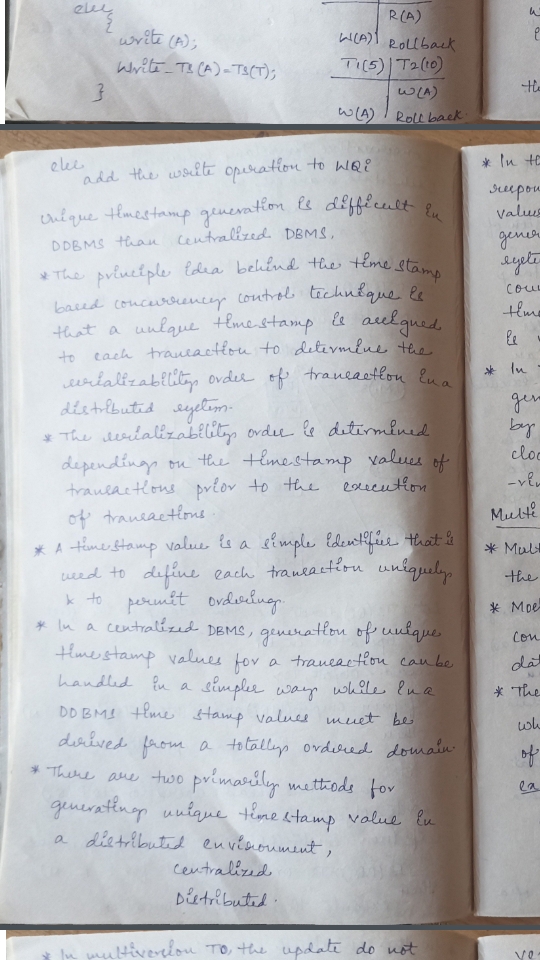 else
{
write (A);
Write_TS(A)=TS(T);
}
R(A)
W(A) Rollback
T1(5) T2(10)
W(A)
W(A) Rollback
else
add the write operation to WQi
Unique timestamp generation is difficult in
DDBMS than centralized DBMS.
* The principle idea behind the time stamp
based concurrency control technique is
that a unique timestamp is assigned
to each transaction to determine the
serializability order of transaction in a
distributed system.
* The serializability order is determined
depending on the timestamp values of
transactions prior to the execution
of transactions.
* A timestamp value is a simple identifier that is
used to define each transaction uniquely
& to permit ordering.
* In a centralized DBMS, generation of unique
timestamp values for a transaction can be
handled in a simpler way while in a
DDBMS time stamp values must be
derived from a totally ordered domain.
* There are two primarily methods for
generating unique timestamp value in
a distributed environment,
centralized
Distributed.
* In
* In
Multi
* Mult
the
* Most
con
dat
* The
of
ex
* In multiversion TO, the update do not